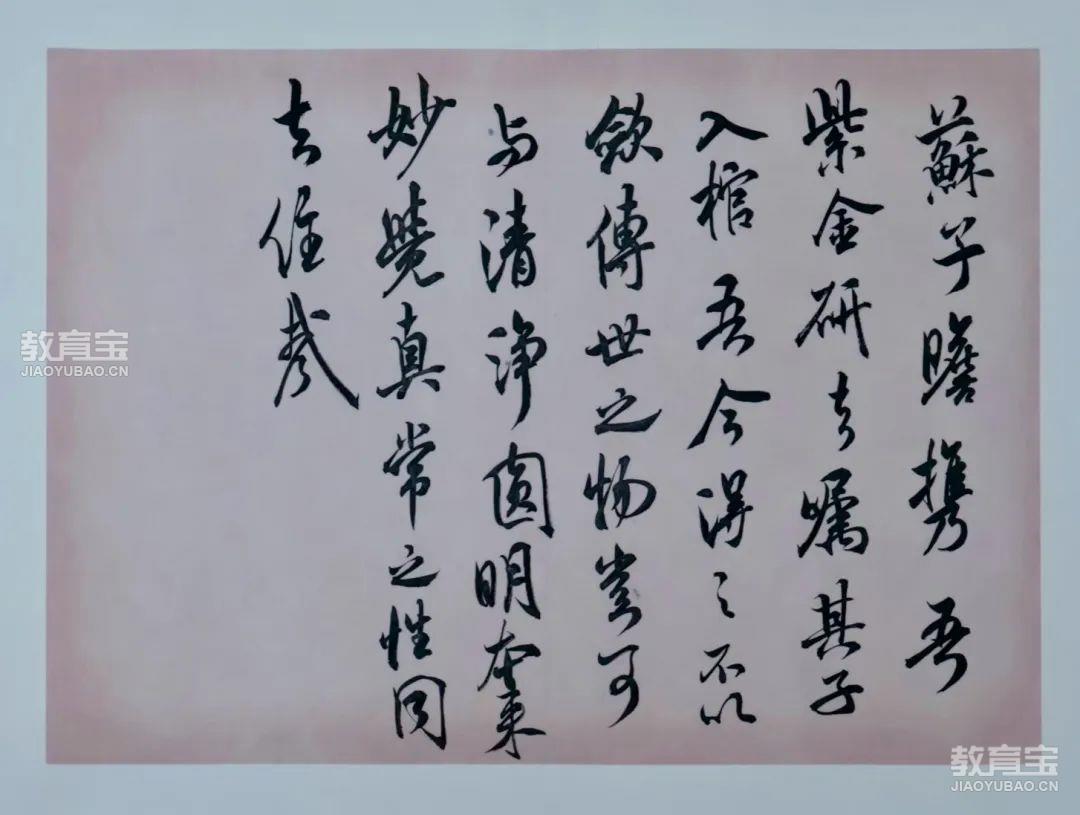 蘇子瞻攜吾
紫金研去嘱其子
入棺吾今得之不以
歛傳世之物豈可
与清淨圓明本來
妙覺真常之性同
去住哉
教育宝
JIAOYUBAO.CN
教育宝
JIAOYUBAO.CN